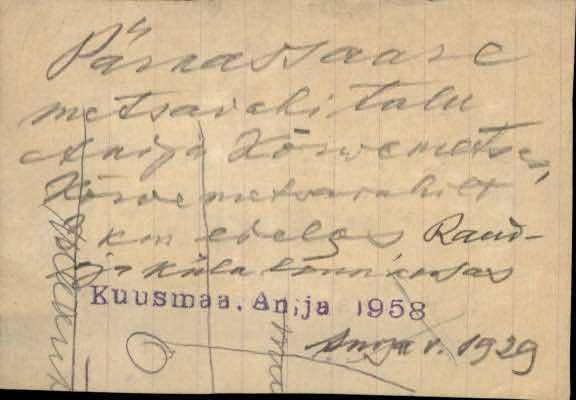 Pärnassaare
metsavahi talu
Anija Kõrvemetsas,
Kõrvemetsavahilt
km edelas Raud-
oja küla
Kuusmaa. Anija 1958
Anija v. 1929